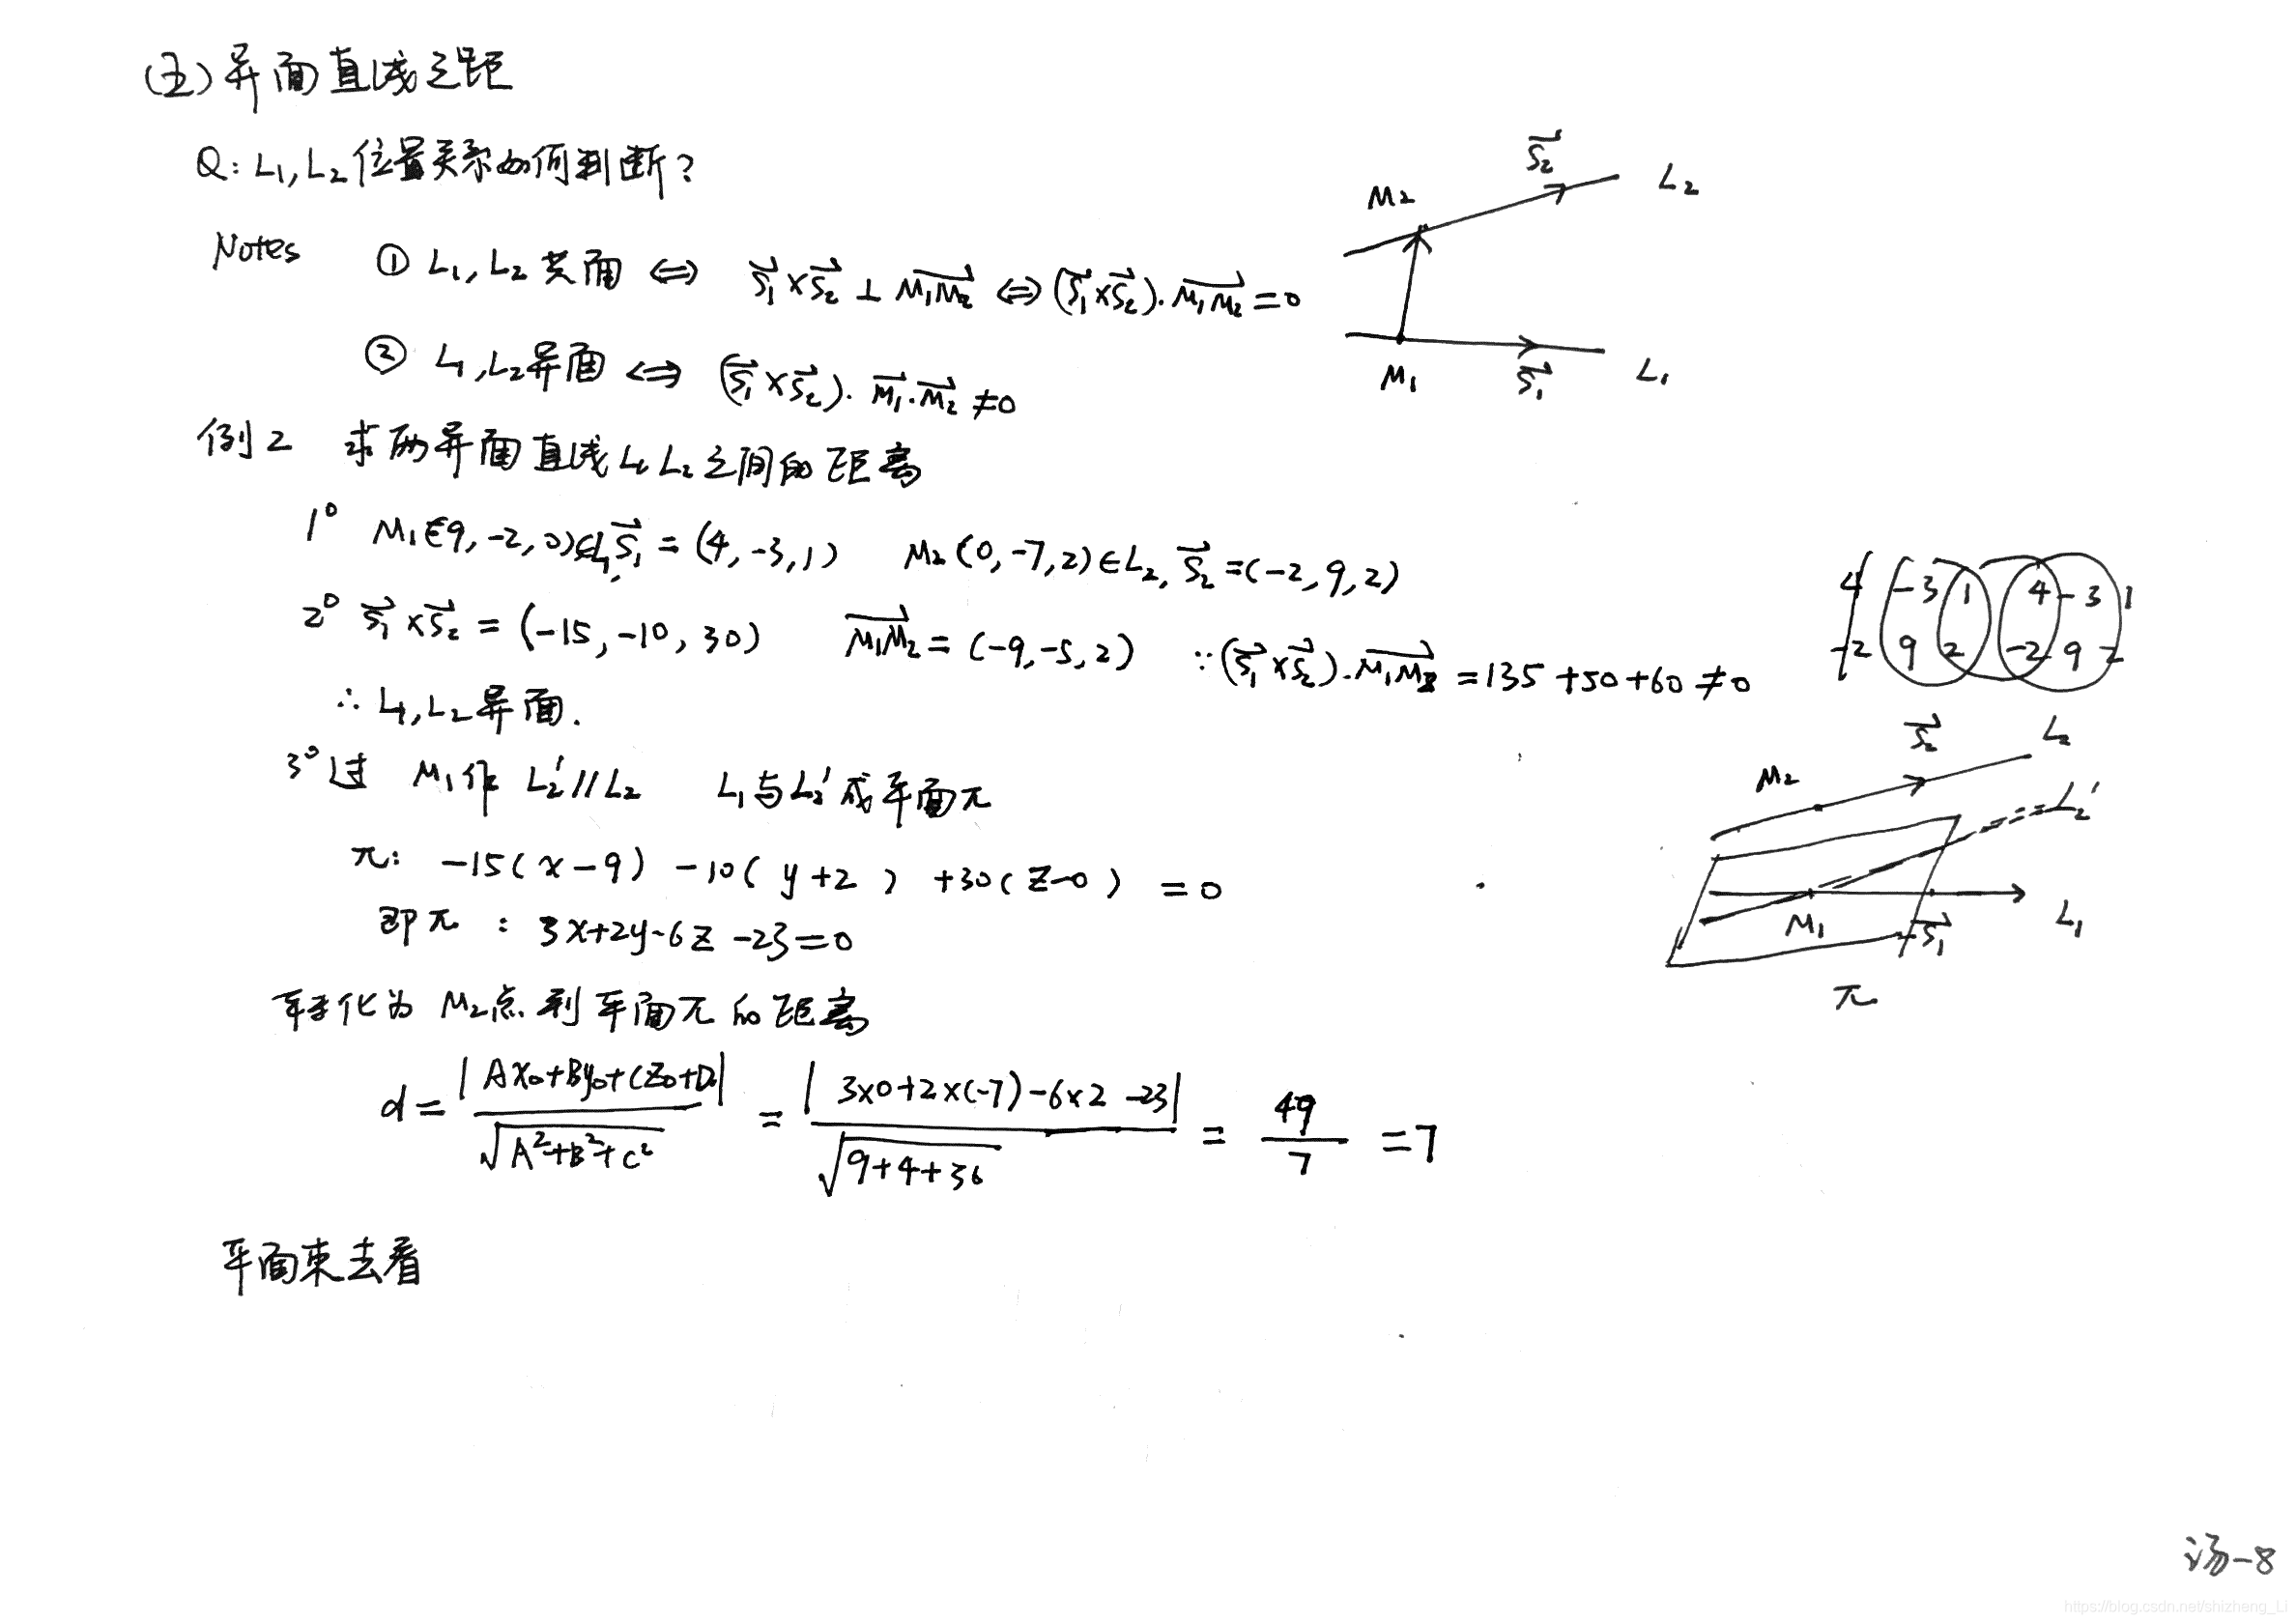 (五)异面直线之距
Q: L₁, L₂位置关系如何判断?
Notes ① L₁, L₂ 共面 ⇔ s₁⃗×s₂⃗ ⊥ M₁M₂⃗ ⇔ (s₁⃗×s₂⃗)·M₁M₂⃗=0
② L₁, L₂异面 ⇔ (s₁⃗×s₂⃗)·M₁⃗·M₂⃗≠0
M₂ s₂⃗ L₂
M₁ s₁⃗ L₁
例2 求两异面直线L₁ L₂之间的距离
1° M₁(9, -2, 0)∈L₁, s₁⃗=(4, -3, 1) M₂(0, -7, 2)∈L₂, s₂⃗=(-2, 9, 2)
2° s₁⃗×s₂⃗=(-15, -10, 30) M₁M₂⃗=(-9, -5, 2) ∵(s₁⃗×s₂⃗)·M₁M₂⃗=135+50+60≠0
4 -3 1 4 -3 1
-2 9 2 -2 9 2
∴ L₁, L₂异面.
3°过 M₁作 L₂′//L₂ L₁与L₂′成平面π
π: -15(x-9) -10(y+2) +30(z-0) =0
即π : 3x+2y-6z-23=0
M₂ s₂⃗ L₂
L₂′
M₁ s₁⃗ L₁
π
转化为 M₂点到平面π的距离
d=|Ax₀+By₀+Cz₀+D|/√(A²+B²+C²) = |3×0+2×(-7)-6×2-23|/√(9+4+36) = 49/7 =7
平面束去看
汤-8
https://blog.csdn.net/shizheng_Li